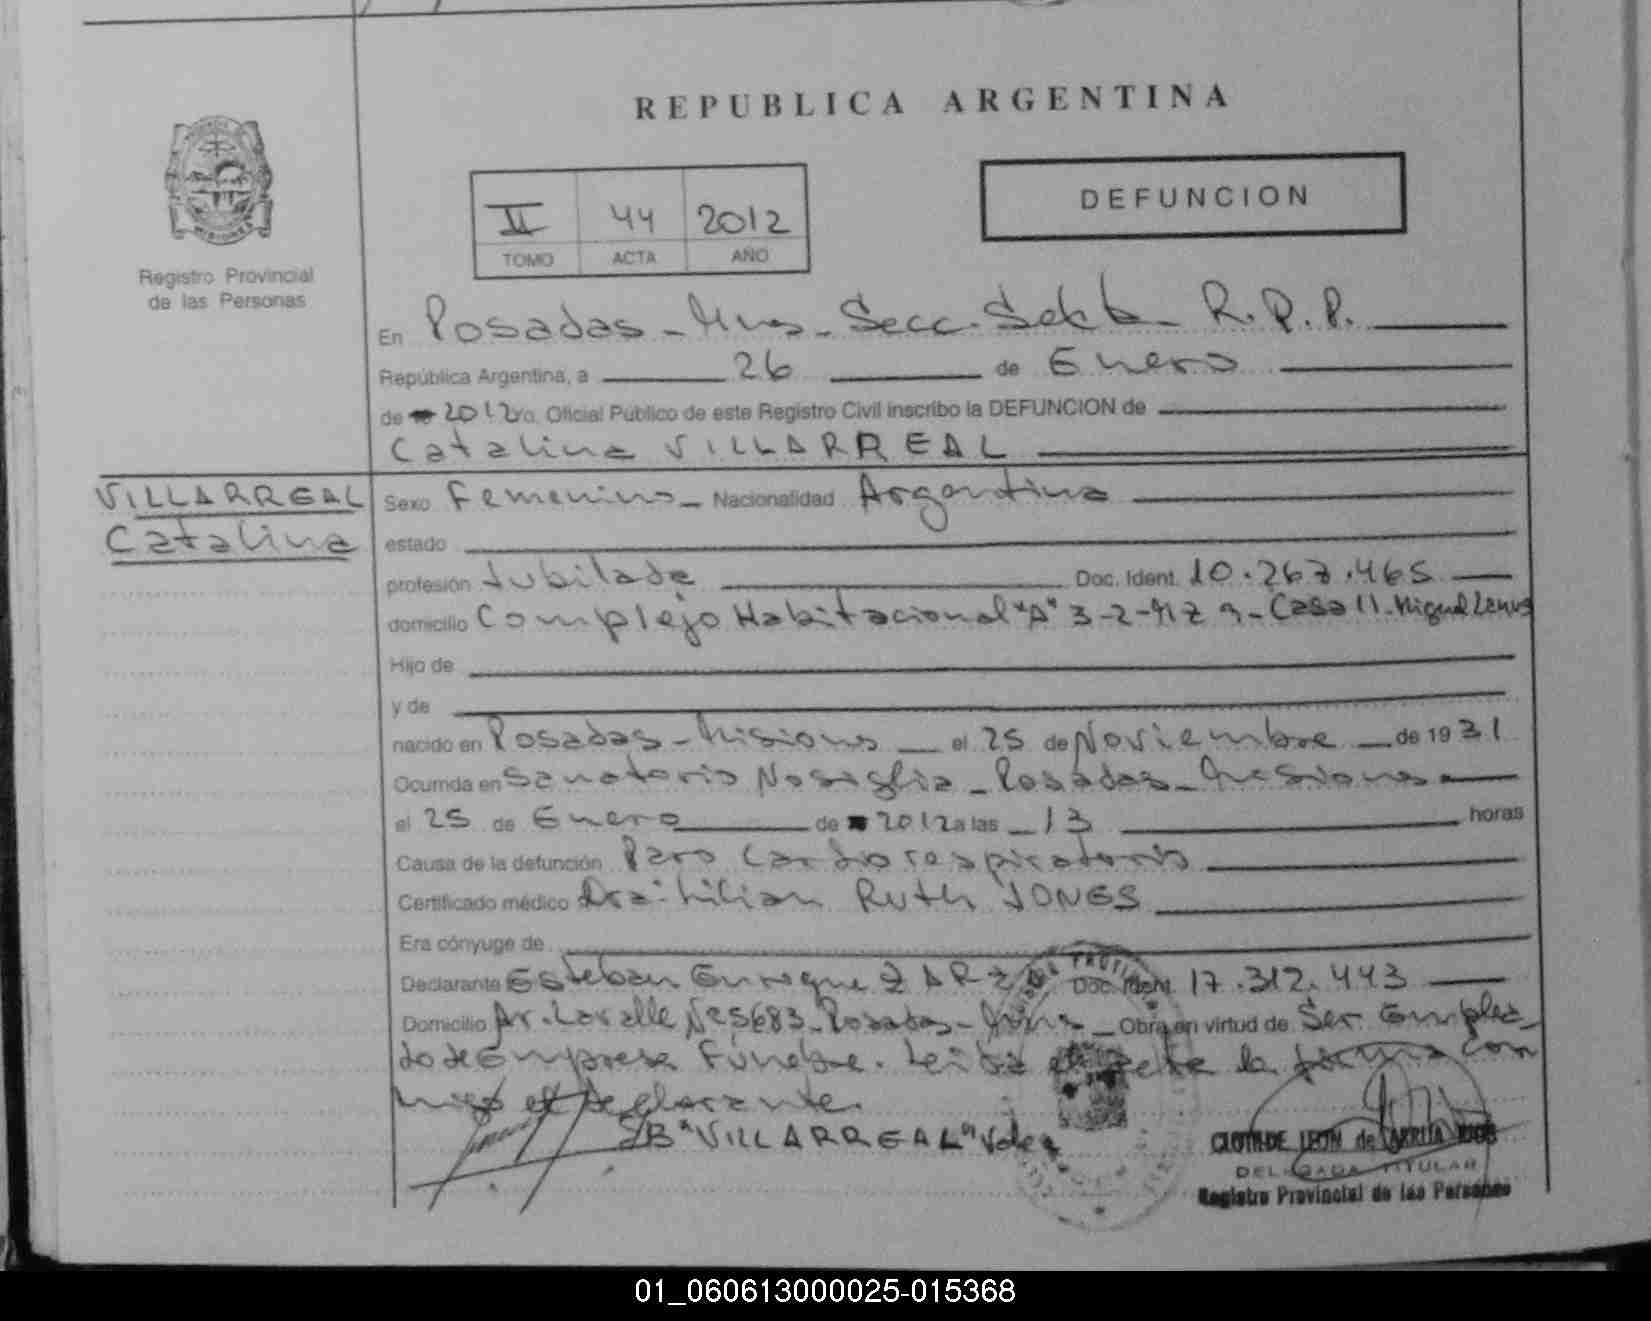 REPUBLICA ARGENTINA
DEFUNCION
II 44 2012
TOMO ACTA AÑO
Registro Provincial
de las Personas
En Posadas - Mnes - Secc. Sexta - R.P.P.
República Argentina, a 26 de Enero
de 2012 yo, Oficial Público de este Registro Civil inscribo la DEFUNCION de
Catalina VILLARREAL
VILLARREAL
Catalina
Sexo Femenino - Nacionalidad Argentina
estado
profesión Jubilada Doc. Ident. 10.267.465
domicilio Complejo Habitacional "A" 3-2- Mz 9 - Casa 11 - Miguel Lanus
Hijo de
y de
nacido en Posadas - Misiones el 25 de Noviembre de 1931
Ocurrida en Sanatorio Nosiglia - Posadas - Misiones
el 25 de Enero de 2012 a las 13 horas
Causa de la defunción Paro Cardiorespiratorio
Certificado médico Dra. Lilian Ruth JONES
Era cónyuge de
Declarante Esteban Enrique Doc. Ident. 17.312.443
Domicilio Av. Lavalle Nº 5683 - Posadas - Mnes - Obra en virtud de Ser Emplea-
do de Empresa Fúnebre. Leída el acta la firma con
migo el declarante.
S/Bº "VILLARREAL" Vale
CLOTILDE LEON de
DELEGADA TITULAR
Registro Provincial de las Personas
01_060613000025-015368